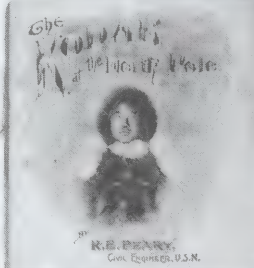 The
at the North Pole
by
R.E. PEARY,
CIVIL ENGINEER, U.S.N.